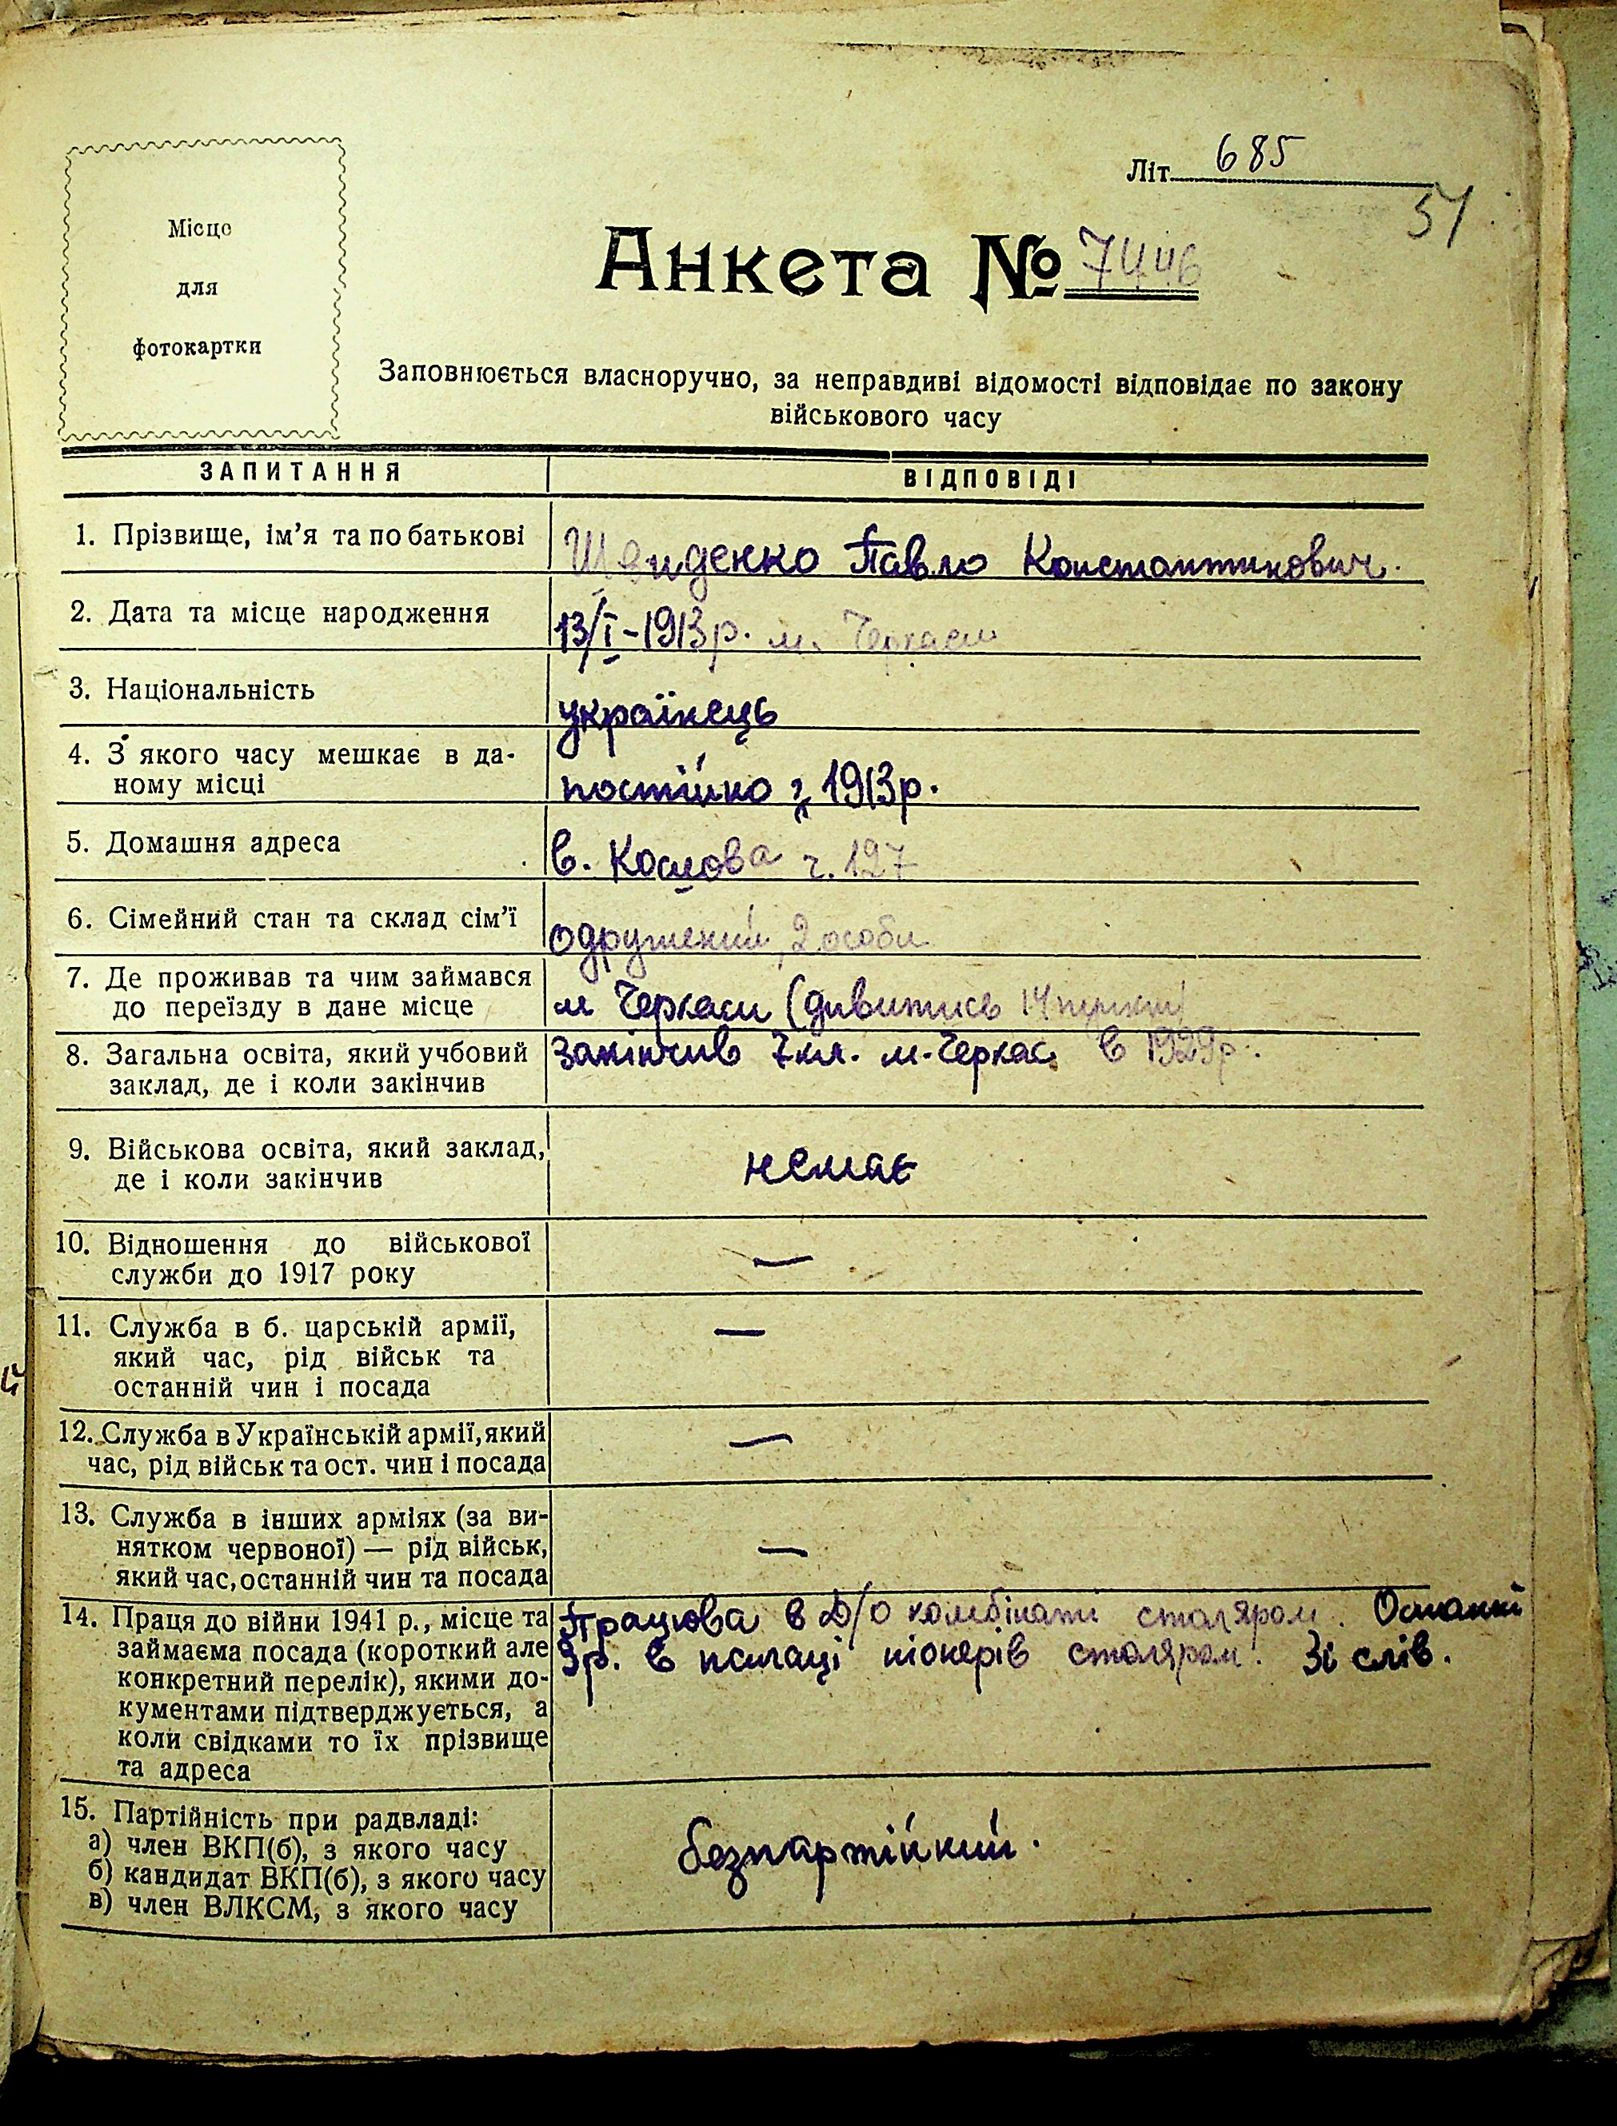 Літ. 685
51
Місце
для
фотокартки
Анкета № 7446
Заповнюється власноручно, за неправдиві відомості відповідає по закону
військового часу
ЗАПИТАННЯ ВІДПОВІДІ
1. Прізвище, ім'я та по батькові Швиденко Павло Константинович.
2. Дата та місце народження 13/I-1913р. м. Черкаси
3. Національність українець
4. З якого часу мешкає в да-
ному місці постійно з 1913р.
5. Домашня адреса в. Козлова ч. 127
6. Сімейний стан та склад сім'ї одружений, 2 особи
7. Де проживав та чим займався
до переїзду в дане місце м Черкаси (дивитись 14 пункт)
8. Загальна освіта, який учбовий закінчив 7кл. м. Черкас в 1929р.
заклад, де і коли закінчив
9. Військова освіта, який заклад,
де і коли закінчив немає
10. Відношення до військової
служби до 1917 року —
11. Служба в б. царській армії, —
який час, рід військ та
останній чин і посада
12. Служба в Українській армії, який —
час, рід військ та ост. чин і посада
13. Служба в інших арміях (за ви-
нятком червоної) — рід військ, —
який час, останній чин та посада
14. Праця до війни 1941 р., місце та Працюва в Д/О комбінаті столяром. Останні
займаєма посада (короткий але 3р. в палаці піонерів столяром. Зі слів.
конкретний перелік), якими до-
кументами підтверджується, а
коли свідками то їх прізвище
та адреса
15. Партійність при радвладі:
а) член ВКП(б), з якого часу безпартійний.
б) кандидат ВКП(б), з якого часу
в) член ВЛКСМ, з якого часу